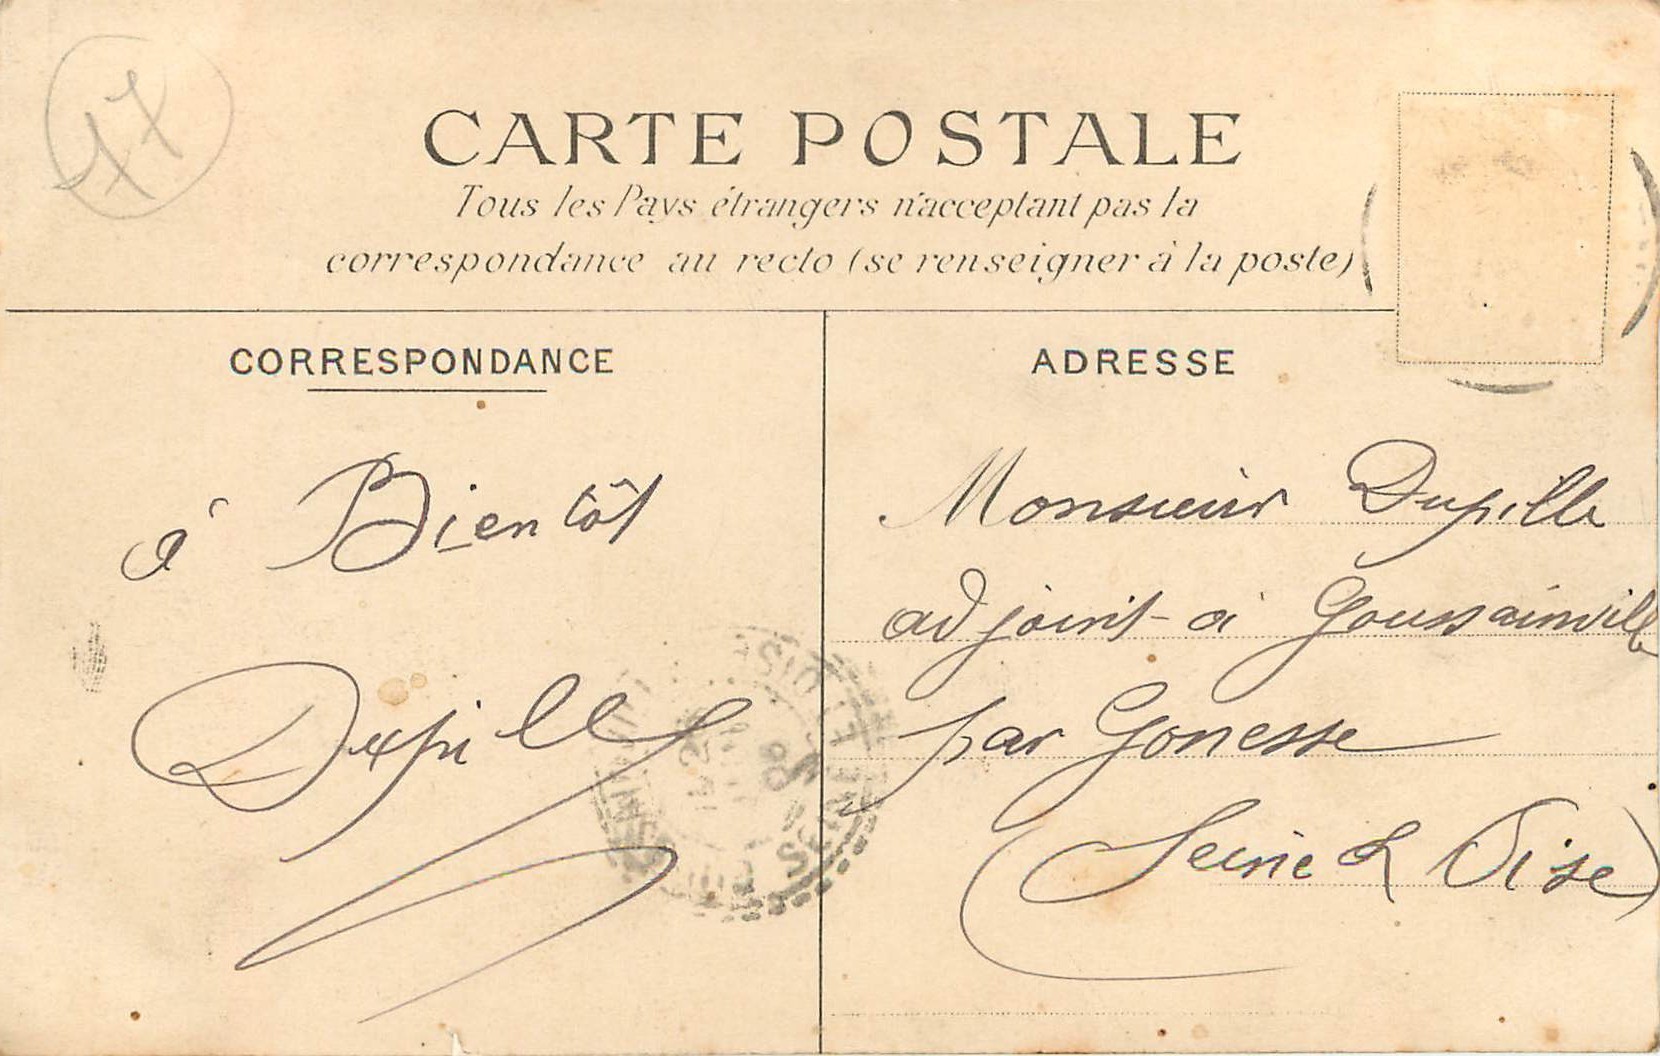 77
CARTE POSTALE
Tous les Pays étrangers n'acceptant pas la
correspondance au recto (se renseigner à la poste)
CORRESPONDANCE
ADRESSE
à Bientôt
Dupille
Monsieur Dupille
adjoint à Goussainville
par Gonesse
(Seine & Oise)
SEINE ET OISE